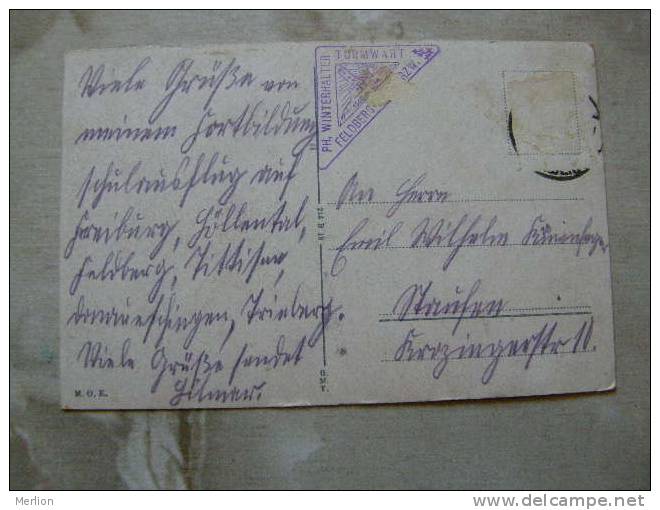 Viele Grüße von
meinem Fortbildung
schulausflug auf
Freiburg, Höllental,
Feldberg, Tittisee,
Donaueschingen, Triberg.
Viele Grüße sendet
Hilmar.
M. O. K.
TURMWART
PH. WINTERHALTER
FELDBERG
G. M. T.
An Herrn
Emil Wilhelm
Staufen
Krozingerstr 11.
Merlion
http://www.delcampe.net